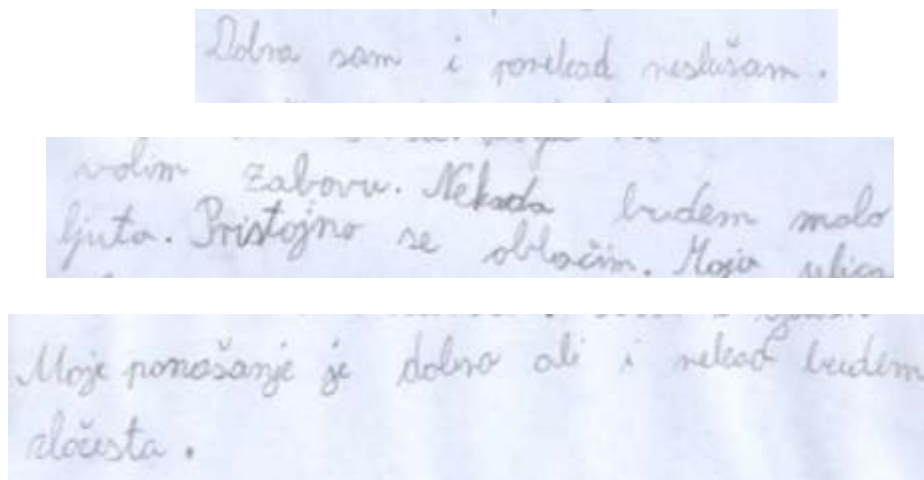 Dobra sam i ponekad neslušam.
volim zabavu. Nekada budem malo
ljuta. Pristojno se oblačim. Moja ulica
Moje ponašanje je dobro ali i nekad budem
zločesta.